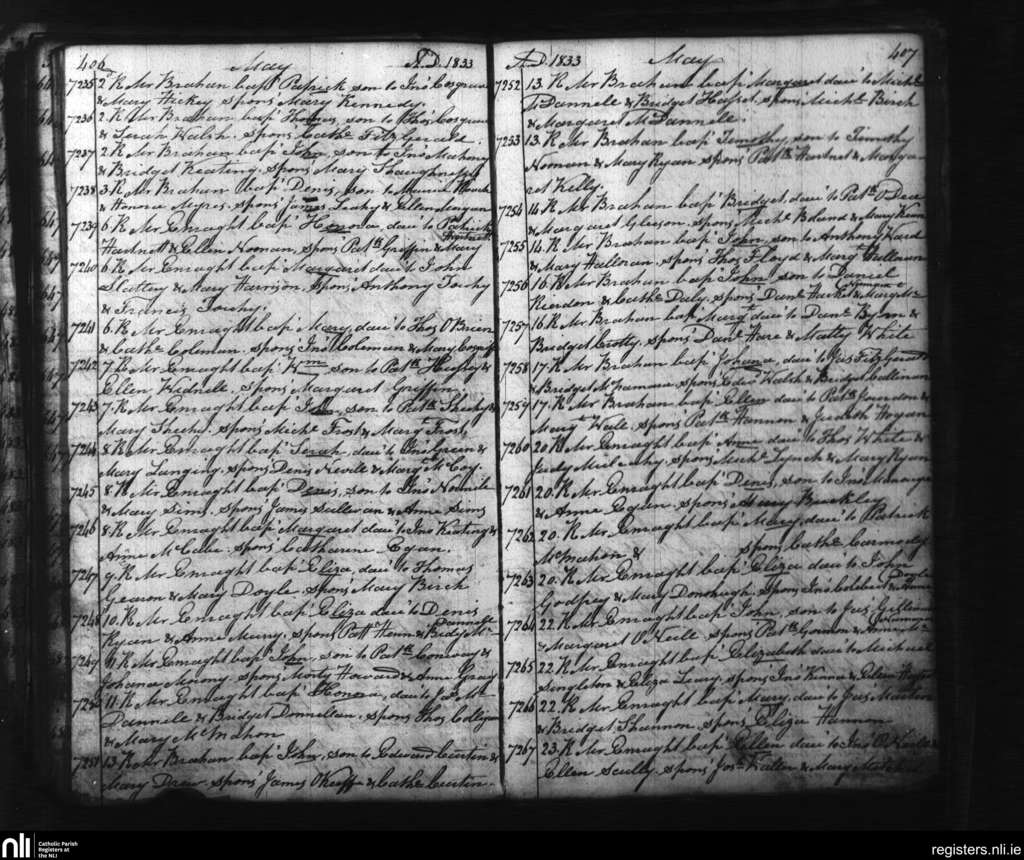 406 May A.D. 1833
7235 2. R Mr Brahan bap.d Patrick son to Jno Cosgrave
& Mary Hickey spons Mary Kennedy.
7236 2. R Mr Brahan bap.d Thomas, son to Thos Cosgrave
& Sarah Walsh. spons Cathe FitzGerald.
7237 2. R Mr Brahan bap.d John, son to Jno Mahony
& Bridget Keating. spons Mary Shaughnessy
7238 3. R Mr Brahan bap.d Denis, son to Maurice
& Honora Myres. spons James Leahy & Ellen
7239 6. R Mr Enraght bap.d Honora, dau to Patrick
Hartnett & Ellen Noonan, spons Patk Griffin & Mary Hartnett
7240 6. R Mr Enraght bap.d Margaret dau to John
Slattery & Mary Harrison. spons Anthony Touhy
& Francis Touhy.
7241 6. R Mr Enraght bap.d Mary, dau to Thos O'Brien
& Cathe Coleman. spons Jno Coleman & Mary
7242 7. R Mr Enraght bap.d Wm son to Patk &
Ellen Widnell. spons Margaret Griffin.
7243 7. R Mr Enraght bap.d John, son to Patk Sheehy &
Mary Sheehy. spons Michl Frost & Margt Frost
7244 8. R Mr Enraght bap.d Sarah, dau to Jno Green &
Mary Langing. spons Denis Neville & Mary McCoy.
7245 8. R Mr Enraght bap.d Denis, son to Jno
& Mary Sims. spons James Sullivan & Anne Sims
7246 8. R Mr Enraght bap.d Margaret dau to Jno Keating &
Anne McCabe. spons Catharine Egan.
7247 9. R Mr Enraght bap.d Eliza dau to Thomas
Gearon & Mary Doyle. spons Mary Birch
7248 10. R Mr Enraght bap.d Eliza dau to Denis
Ryan & Anne Many. spons Patt Henn & Bridgt Mc Dannell
7249 11. R Mr Enraght bap.d John, son to Patk Conway &
Johana Moony. spons Morty Howard & Anne Gray
7250 11. R Mr Enraght bap.d Honora, dau to Jas Mc
Dannell & Bridget Donnellan. spons Thos
& Mary McMahon
7251 13. R Mr Brahan bap.d John, son to Edward Curtin &
Mary Drew. spons James OKeeffe & Cathe Curtin.
A.D. 1833 May 407
7252 13. R Mr Brahan bap.d Margaret dau to Michl
& Bridget. spons Michl Birch
& Margaret McDannell.
7253 13. R Mr Brahan bap.d Timothy, son to Timothy
Noonan & Mary Ryan spons Patk Hartnet & Marga
ret Kelly.
7254 14. R Mr Brahan bap.d Bridget, dau to Patk O Dea
& Margaret Gleeson. spons Michl Boland & Mary
7255 14. R Mr Brahan bap.d John, son to Anthony
& Mary Halloran. spons Thos Floyd & Margt
7256 16. R Mr Brahan bap.d John son to Daniel
Riordon & Cathe Daly. spons Danl & Margt
7257 16. R Mr Brahan bap.d Margt dau to Danl Byrn &
Bridget Crotty. spons Danl Hare & Matty White
7258 17. R Mr Brahan bap.d Johana, dau to Jas FitzGerald
& Bridget McNamara. spons Edwd Walsh & Bridget Callinan
7259 17. R Mr Brahan bap.d Ellen dau to Patk Jourdon &
Margt Wall. spons Patk Hannon & Judith Hogan
7260 20. R Mr Enraght bap.d Anne dau to Thos White &
Judy Mulcahy. spons Michl Lynch & Mary Ryan
7261 20. R Mr Enraght bap.d Denis, son to Jno
& Anne Egan. spons Mary Buckley
7262 20. R Mr Enraght bap.d Mary, dau to Patrick
McMahon & spons Cathe Carmody
7263 20. R Mr Enraght bap.d Eliza dau to John
Godfrey & Mary Donohugh. spons Jno & Anne Doyle
7264 22. R Mr Enraght bap.d John, son to Jas
& Margaret O'Neill. spons Patk & Anne
7265 22. R Mr Enraght bap.d Elizabeth dau to Michael
Singleton & Eliza Leary. spons Jno & Ellen
7266 22. R Mr Enraght bap.d Mary dau to Jas
& Bridget Shannon. spons Eliza Hannon
7267 23. R Mr Enraght bap.d Ellen dau to Jno O'Keeffe &
Ellen Scully. spons Jos & Mary
nli Catholic Parish
Registers at
the NLI
registers.nli.ie